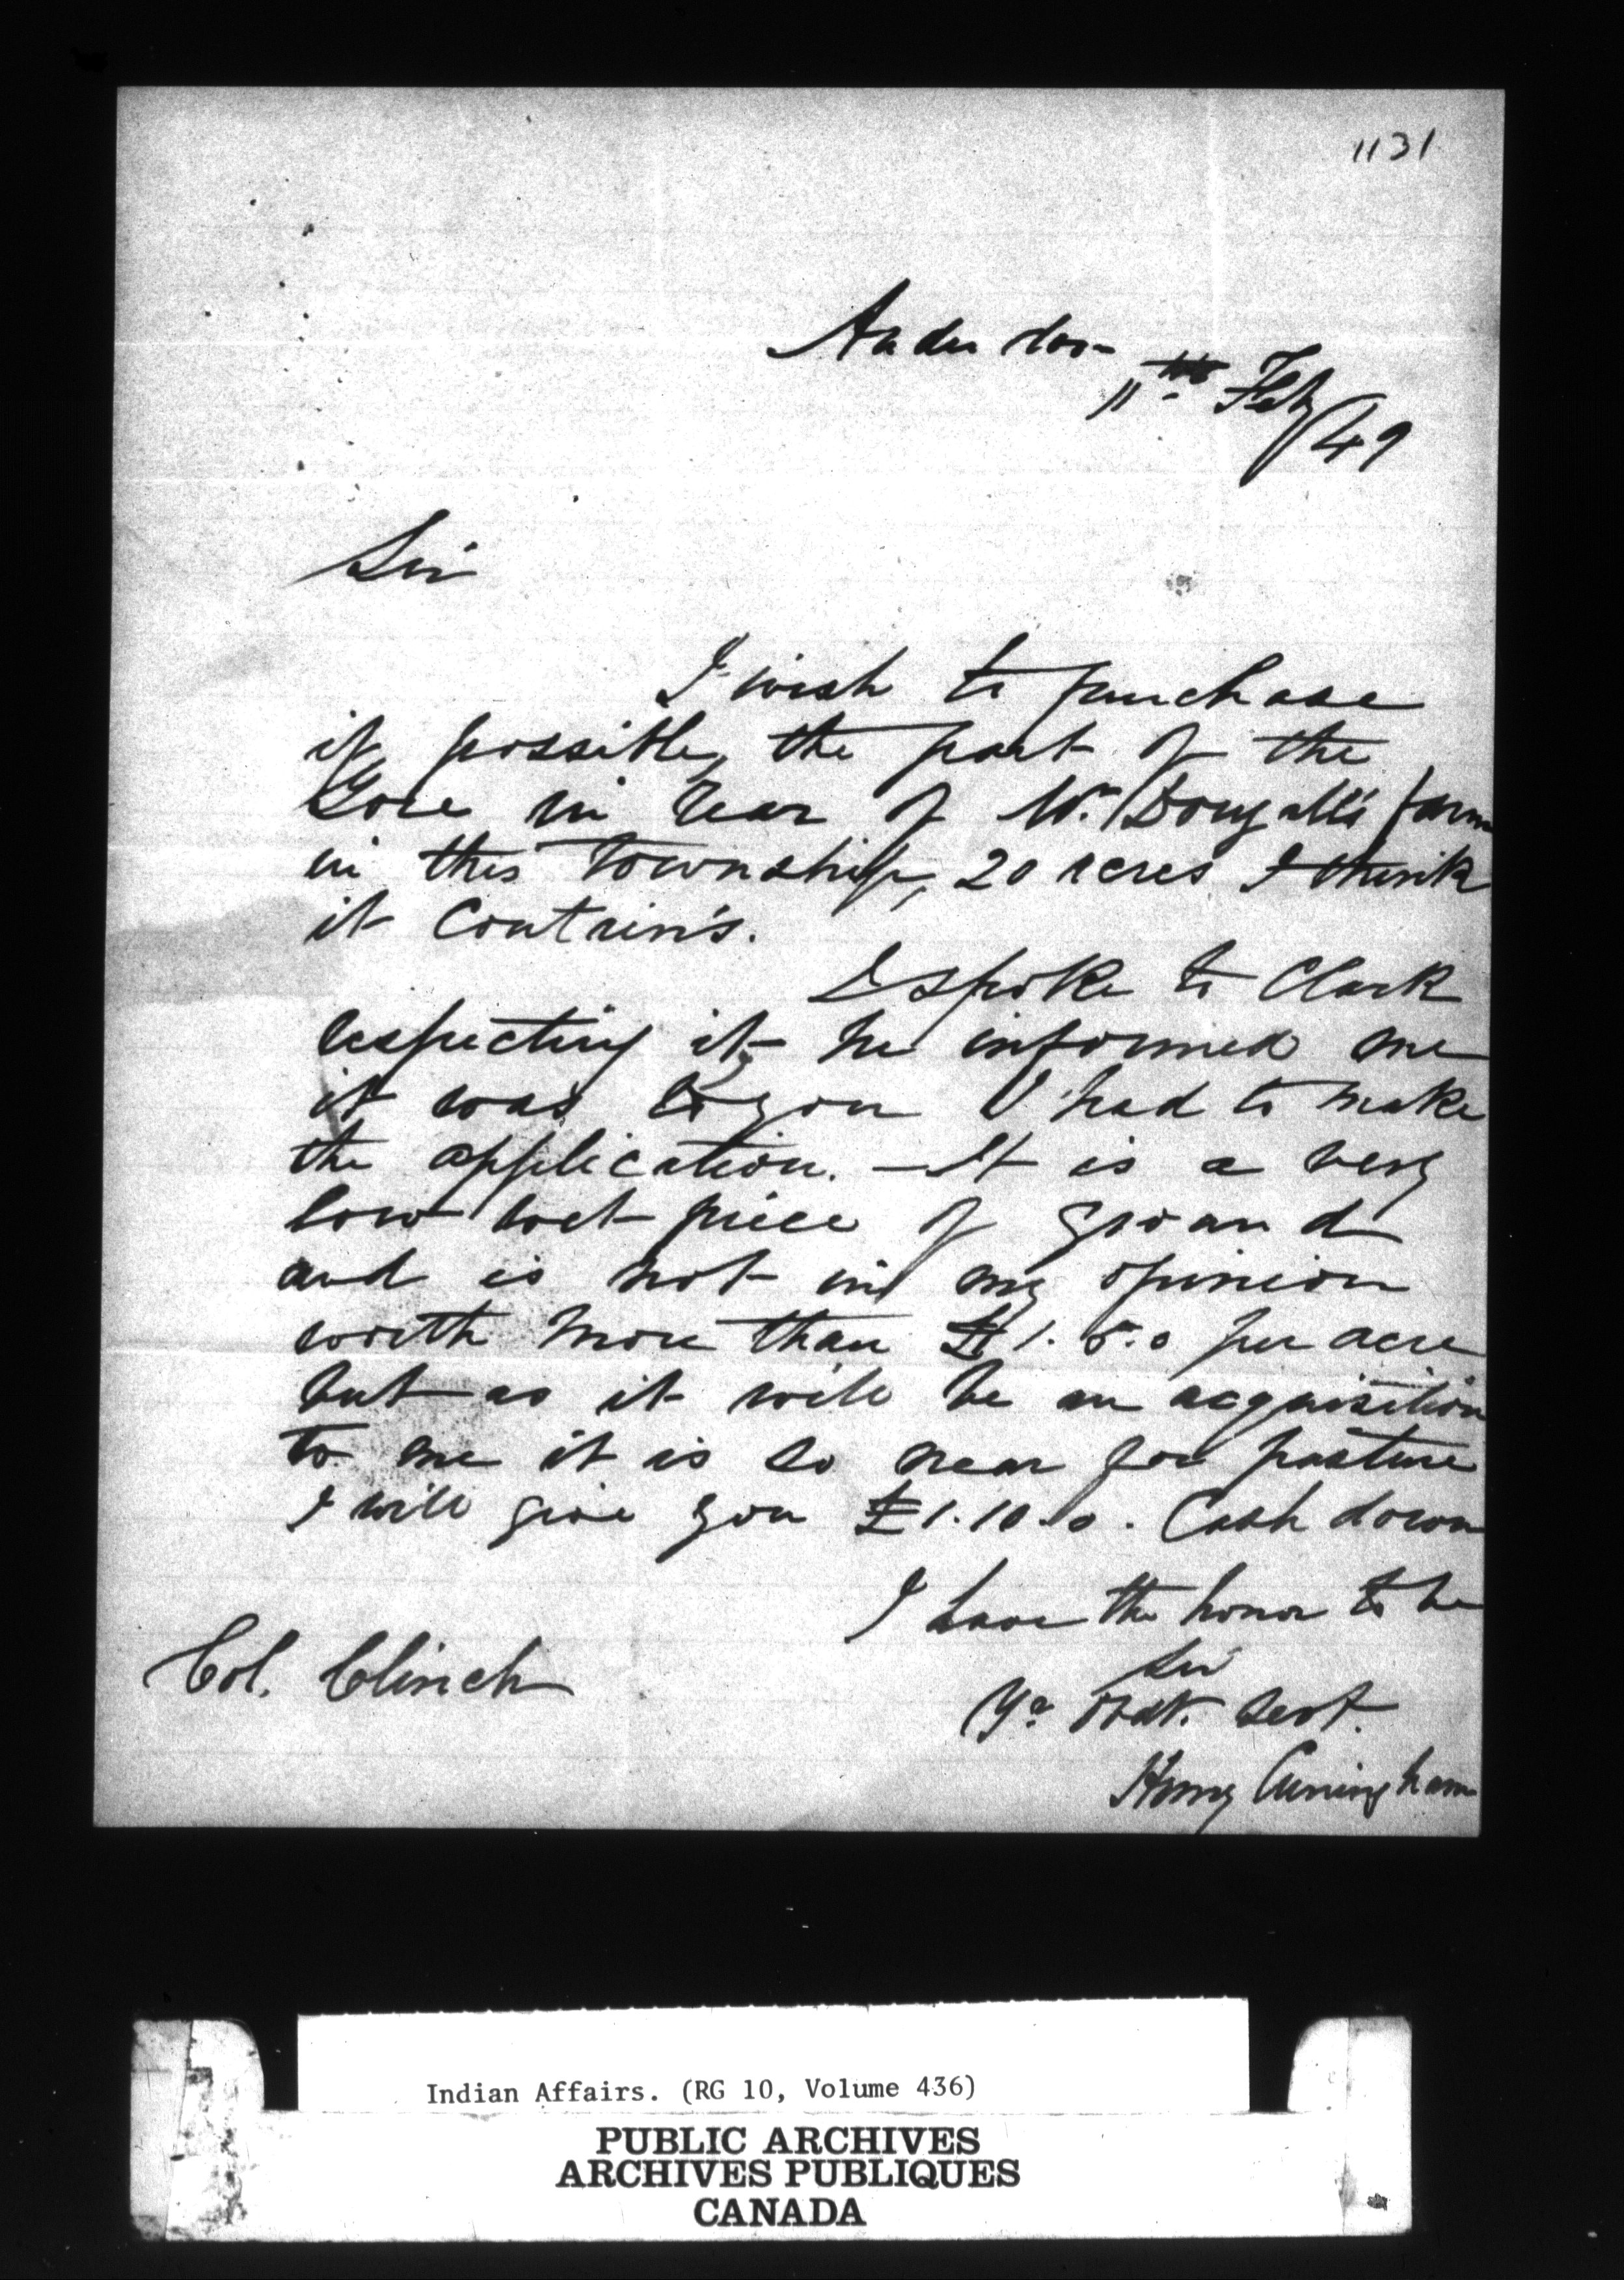 1131
Anderdon
11th Feby/49
Sir
I wish to purchase
if possible, the part of the
Gore in rear of Mr. Dougall's farm
in this Township, 20 acres I think
it Contain's.
I spoke to Clark
respecting it he informed me
it was to you I had to make
the application. - It is a very
low wet piece of ground
and is not in my opinion
worth more than £1.5.0 per acre
but as it will be an acquisition
to me it is so near for pasture
I will give you £1.10.0. Cash down
I have the honor to be
Sir
Yr Obdt. Servt.
Henry Cuningham
Col. Clinch
Indian Affairs. (RG 10, Volume 436)
PUBLIC ARCHIVES
ARCHIVES PUBLIQUES
CANADA